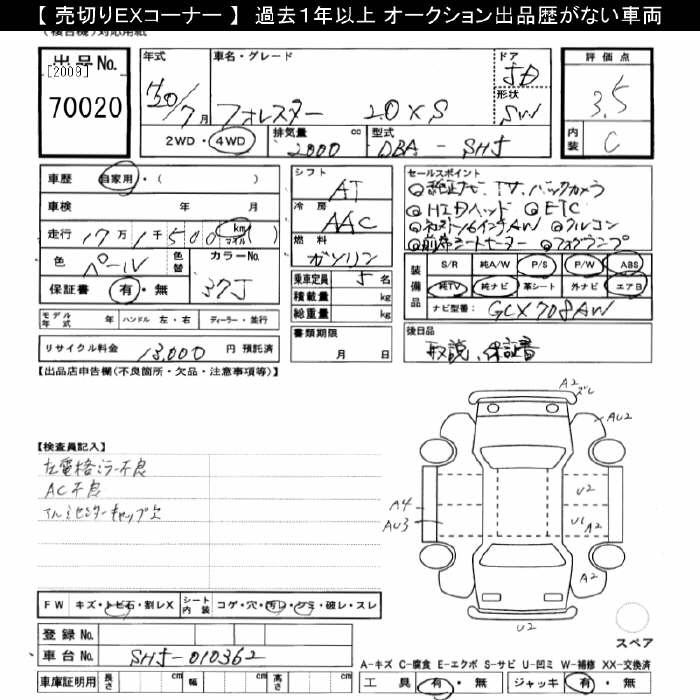 【 売切りEXコーナー 】 過去１年以上 オークション出品歴がない車両
(複合機) 対応用紙
出品No.
[2009]
70020
年式
H20/7月
車名・グレード
フォレスター 20XS
ドア
5D
形状
SW
評価点
3.5
内装
C
2WD・4WD
排気量 cc
2000
型式
DBA - SH5
車歴 自家用・( )
車検 年 月
走行 17万1千500 km マイル )
色 パール
色替
カラーNo.
37J
保証書 有・無
シフト
AT
冷房
AAC
燃料
ガソリン
乗車定員 5 名
積載量 kg
総重量 kg
セールスポイント
◎純正ナビ、TV、バックカメラ
◎HIDヘッド ◎ETC
◎純正16インチAW ◎クルコン
◎前席シートヒーター ◎フォグランプ
装備品
S/R 純A/W P/S P/W ABS
純TV 純ナビ 革シート 外ナビ エアB
ナビ型番: GCX708AW
モデル年式 年
ハンドル 左・右
ディーラー・並行
リサイクル料金 13,000 円 預託済
書類期限
月 日
後日品
取説、保証書
【出品店申告欄(不良箇所・欠品・注意事項等)】
【検査員記入】
左電格ミラー不良
AC不良
アルミセンターキャップ欠
A2
ズレ
AU2
A4
AU3
U2
U1
A2
A2
U2
スペア
FW キズ・トビ石・割レX
シート内装 コゲ・穴・汚レ・シミ・破レ・スレ
登録No.
車台No. SH5-010362
車庫証明用 長さ cm 幅 cm 高さ cm
A-キズ C-腐食 E-エクボ S-サビ U-凹ミ W-補修 XX-交換済
工具 有・無 ジャッキ 有・無